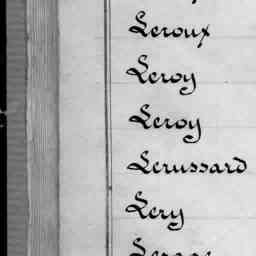 Leroux
Leroy
Leroy
Lerussard
Lery
Lesage